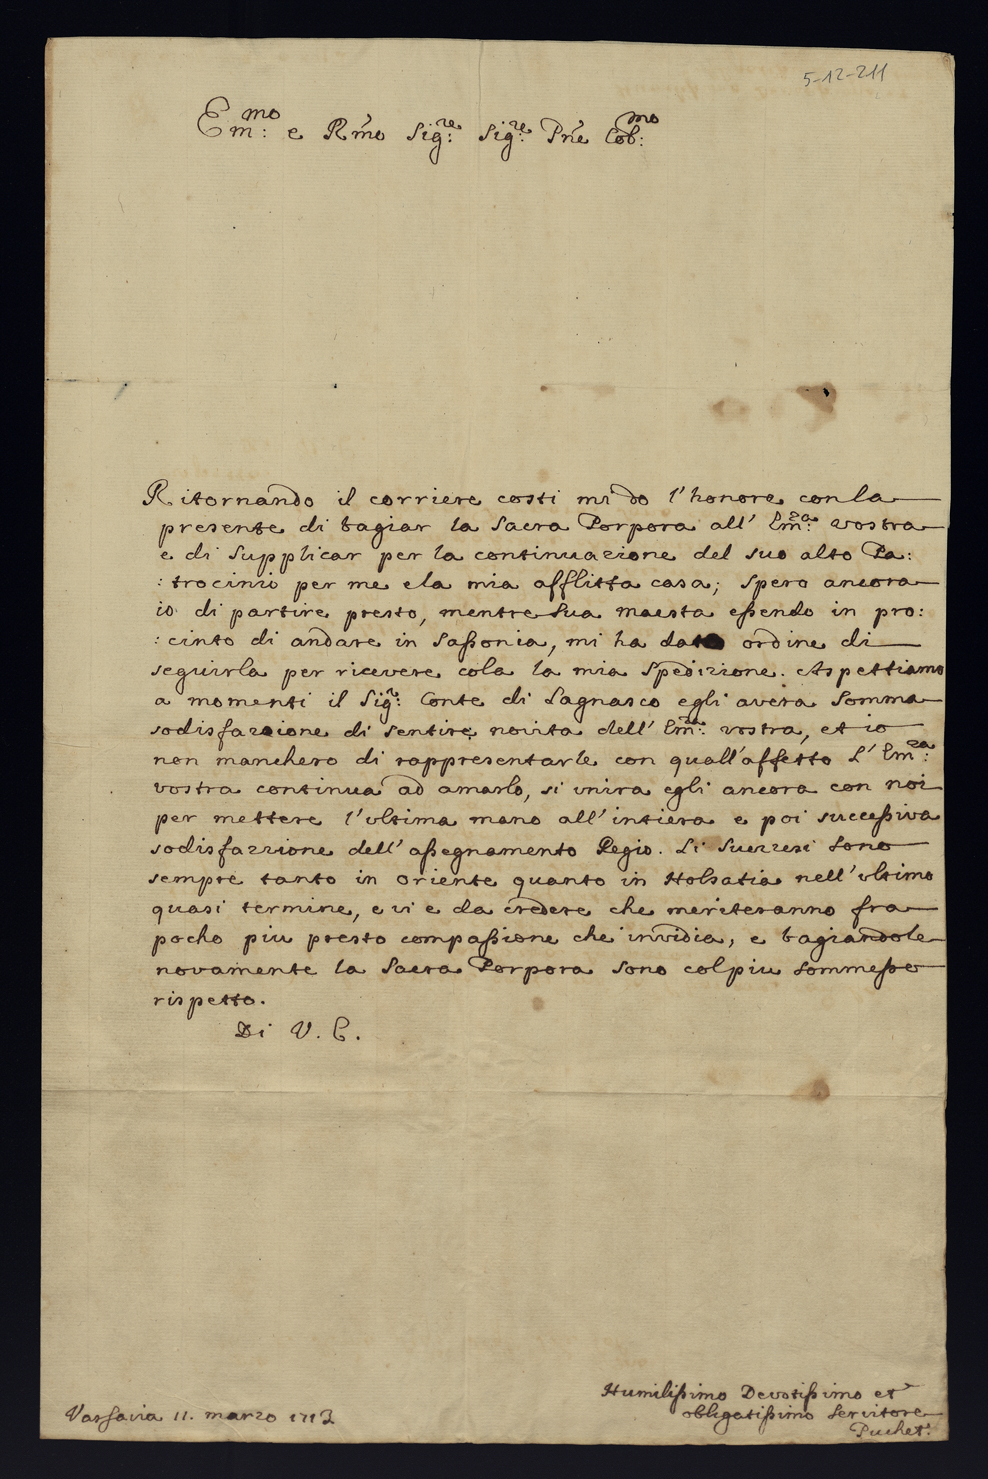 5-12-211
Em:mo e Rmo Sig:re Sig:re Pne Cob:mo
Ritornando il corriere costi mi do l'honore con la
presente di bagiar la Sacra Porpora all' Em:za vostra
e di Supplicar per la continuazione del suo alto Pa:
:trocinio per me e la mia afflitta casa; spero ancora
io di partire presto, mentre Sua maesta essendo in pro:
:cinto di andare in Sassonia, mi ha dato ordine di
seguirla per ricevere cola la mia Spedizione. Aspettiamo
a momenti il Sig:r Conte di Lagnasco egli avera Somma
sodisfazione di Sentire novita dell' Em:za vostra, et io
non manchero di rappresentarle con quall'affetto L' Em:za
vostra continua ad amarlo, si unira egli ancora con noi
per mettere l'ultima mano all' intiera e poi successiva
sodisfazzione dell' assegnamento Regio. Li Suezzesi Sono
sempre tanto in Oriente quanto in Holsatia nell'ultimo
quasi termine, e vi e da credere che meriteranno fra
pocho piu presto compassione che invidia, e bagiandole
novamente la Sacra Porpora Sono col piu Sommesso
rispetto.
Di V. E.
Humilissimo Devotissimo et
obligatissimo Servitore
Puchet:
Varsavia 11. marzo 1713